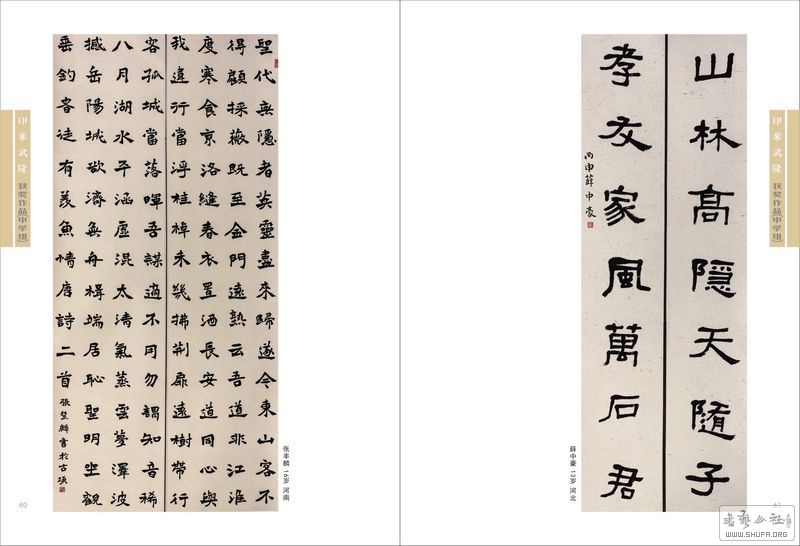 印象武隆 获奖作品[中学组]
聖代無隱者英靈盡來歸遂令東山客不
得顧採薇既至金門遠熟云吾道非江淮
度寒食京洛縫春衣置酒長安道同心與
我違行當浮桂棹未幾拂荊扉遠樹帶行
客孤城當落暉吾謀適不用勿謂知音稀
八月湖水平涵虛混太清氣蒸雲夢澤波
撼岳陽城欲濟無舟楫端居恥聖明坐觀
垂釣者徒有羨魚情唐詩二首
張豐麟書於古項
张丰麟 16岁 河南
60
印象武隆 获奖作品[中学组]
山林高隱天隨子
孝友家風萬石君
丙申薛中豪
薛中豪 13岁 河北
61
书艺公社
WWW.SHUFA.ORG